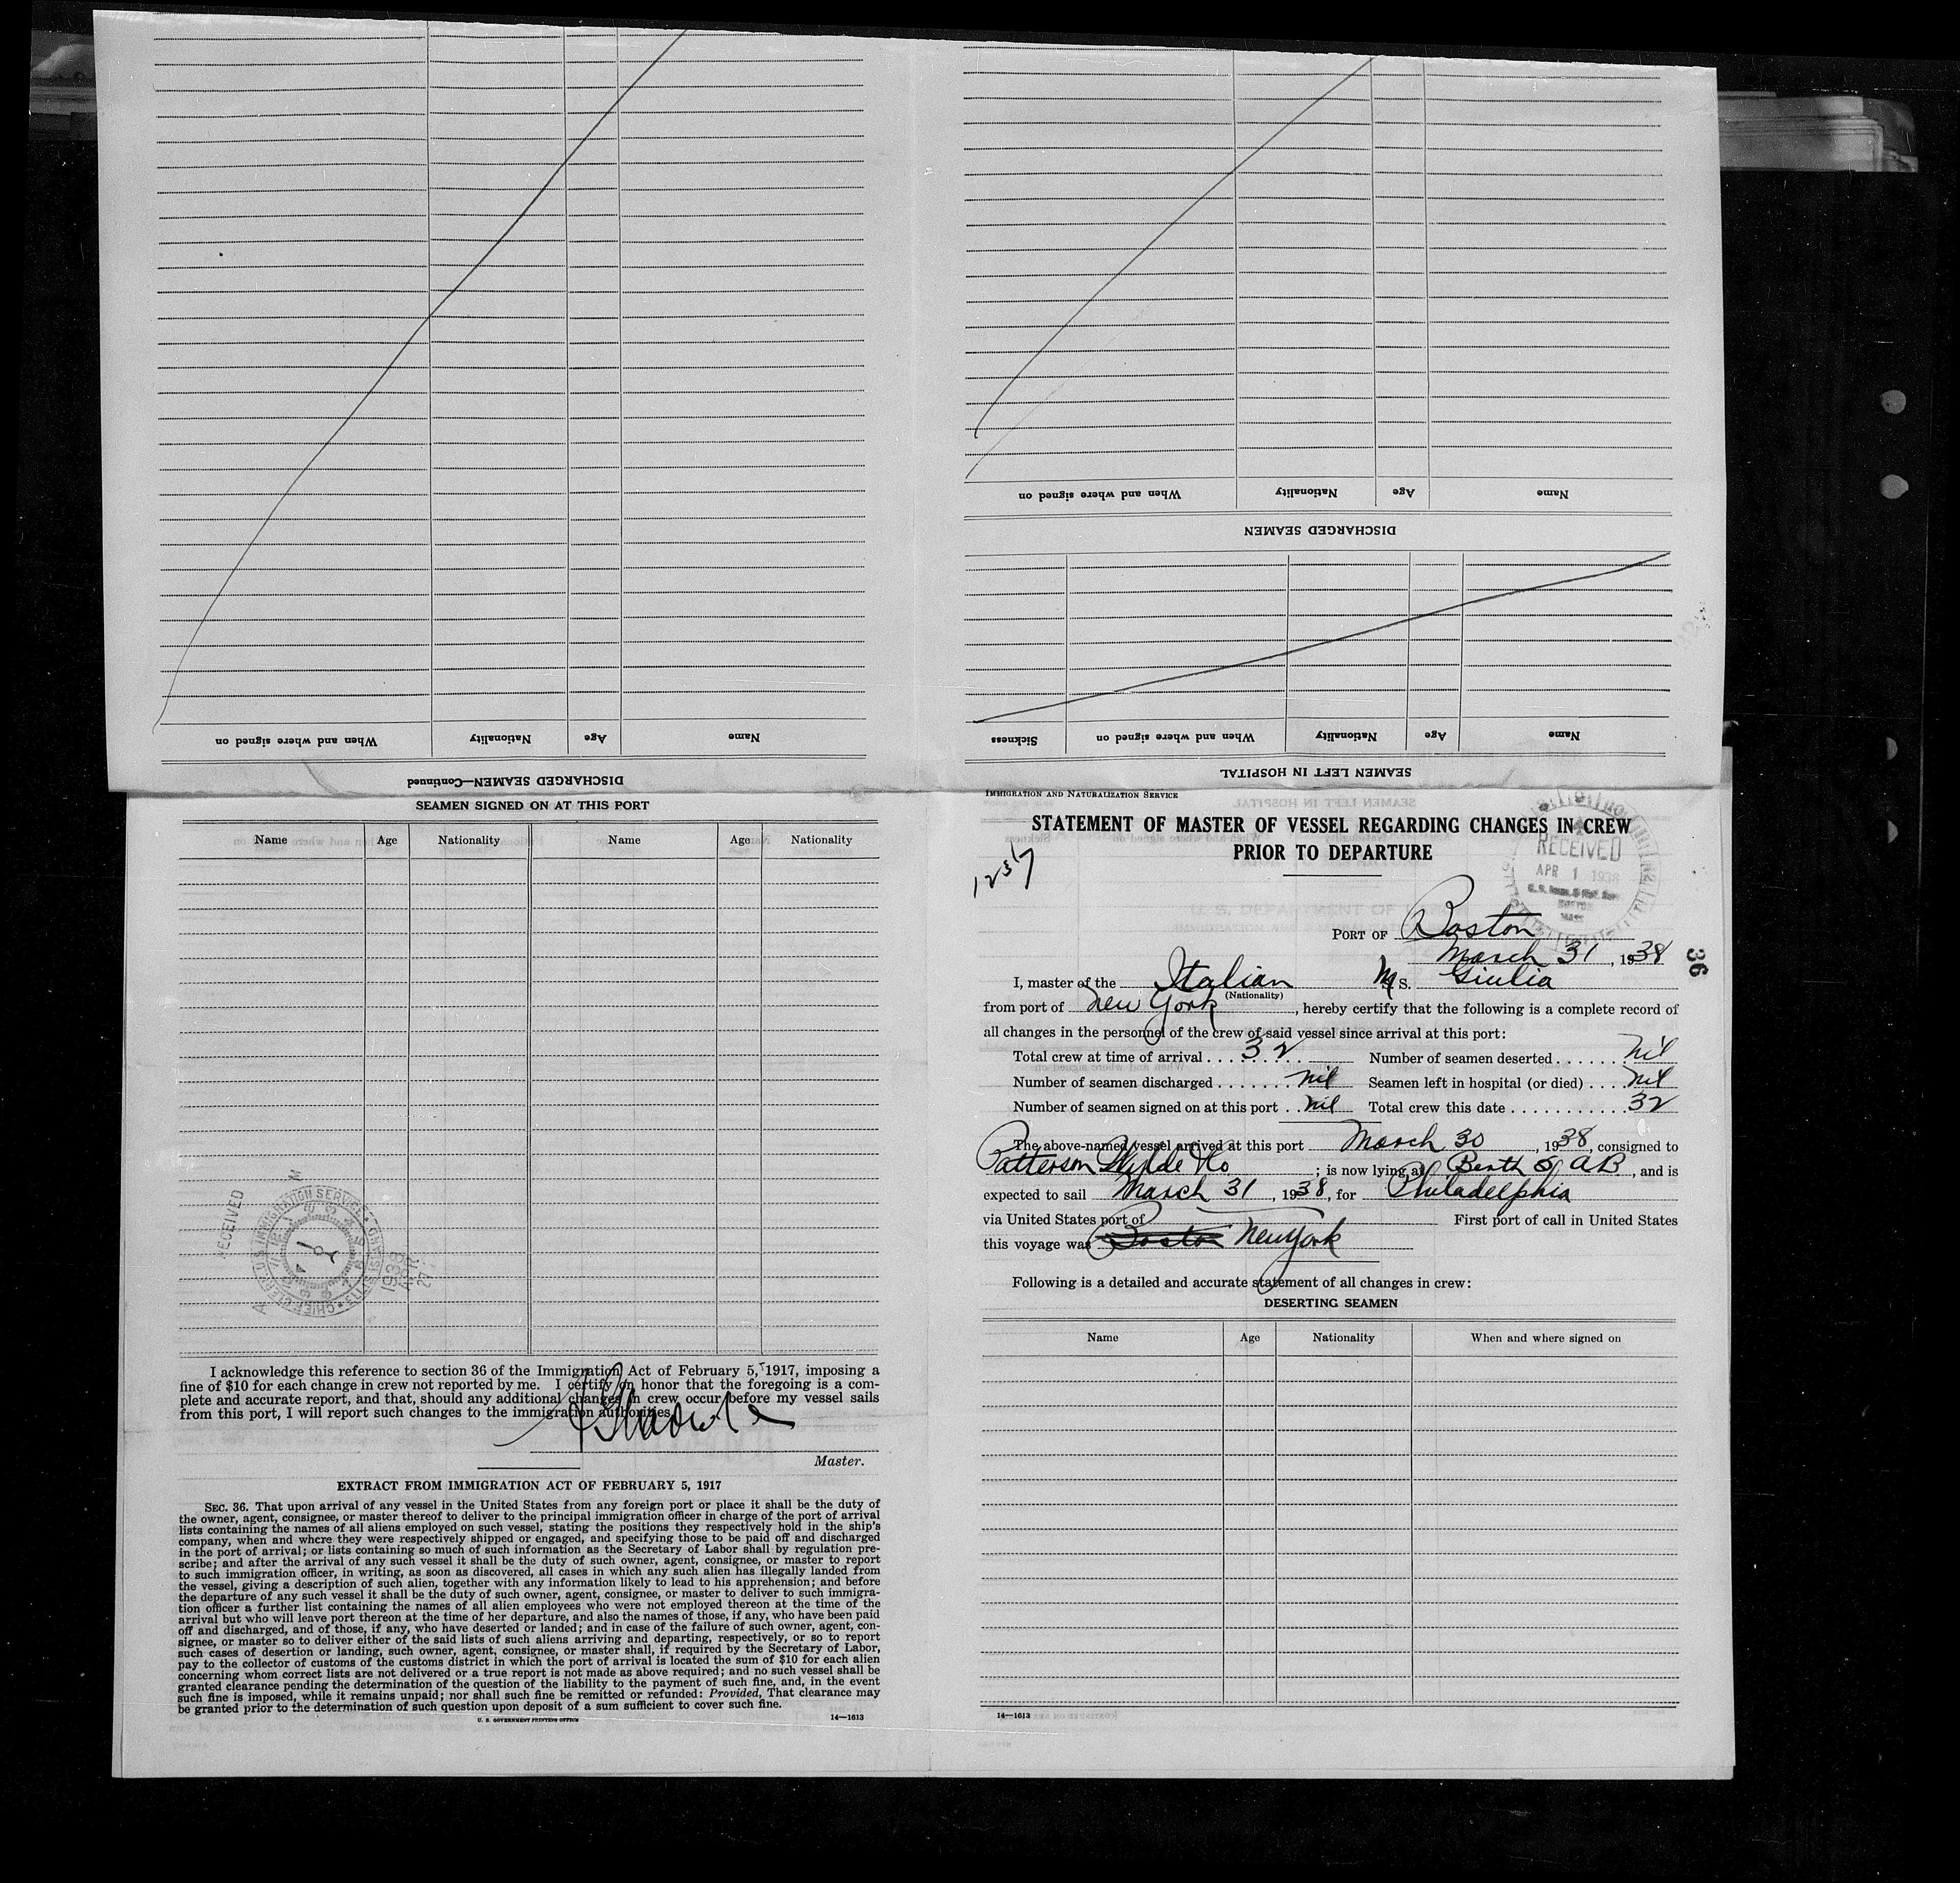 When and where signed on Nationality Age Name
DISCHARGED SEAMEN—Continued
When and where signed on Nationality Age Name
DISCHARGED SEAMEN
Sickness When and where signed on Nationality Age Name
SEAMEN LEFT IN HOSPITAL
SEAMEN SIGNED ON AT THIS PORT
Name Age Nationality Name Age Nationality
RECEIVED
I acknowledge this reference to section 36 of the Immigration Act of February 5, 1917, imposing a
fine of $10 for each change in crew not reported by me. I certify on honor that the foregoing is a com-
plete and accurate report, and that, should any additional changes in crew occur before my vessel sails
from this port, I will report such changes to the immigration authorities.
Master.
EXTRACT FROM IMMIGRATION ACT OF FEBRUARY 5, 1917
SEC. 36. That upon arrival of any vessel in the United States from any foreign port or place it shall be the duty of
the owner, agent, consignee, or master thereof to deliver to the principal immigration officer in charge of the port of arrival
lists containing the names of all aliens employed on such vessel, stating the positions they respectively hold in the ship's
company, when and where they were respectively shipped or engaged, and specifying those to be paid off and discharged
in the port of arrival; or lists containing so much of such information as the Secretary of Labor shall by regulation pre-
scribe; and after the arrival of any such vessel it shall be the duty of such owner, agent, consignee, or master to report
to such immigration officer, in writing, as soon as discovered, all cases in which any such alien has illegally landed from
the vessel, giving a description of such alien, together with any information likely to lead to his apprehension; and before
the departure of any such vessel it shall be the duty of such owner, agent, consignee, or master to deliver to such immigra-
tion officer a further list containing the names of all alien employees who were not employed thereon at the time of the
arrival but who will leave port thereon at the time of her departure, and also the names of those, if any, who have been paid
off and discharged, and of those, if any, who have deserted or landed; and in case of the failure of such owner, agent, con-
signee, or master so to deliver either of the said lists of such aliens arriving and departing, respectively, or so to report
such cases of desertion or landing, such owner, agent, consignee, or master shall, if required by the Secretary of Labor,
pay to the collector of customs of the customs district in which the port of arrival is located the sum of $10 for each alien
concerning whom correct lists are not delivered or a true report is not made as above required; and no such vessel shall be
granted clearance pending the determination of the question of the liability to the payment of such fine, and, in the event
such fine is imposed, while it remains unpaid; nor shall such fine be remitted or refunded: Provided, That clearance may
be granted prior to the determination of such question upon deposit of a sum sufficient to cover such fine.
U. S. GOVERNMENT PRINTING OFFICE 14—1613
IMMIGRATION AND NATURALIZATION SERVICE
STATEMENT OF MASTER OF VESSEL REGARDING CHANGES IN CREW
PRIOR TO DEPARTURE
1237
RECEIVED
APR 1 1938
PORT OF Boston
March 31, 1938
36
I, master of the Italian M S. Giulia
(Nationality)
from port of New York, hereby certify that the following is a complete record of
all changes in the personnel of the crew of said vessel since arrival at this port:
Total crew at time of arrival .... 32 Number of seamen deserted ...... nil
Number of seamen discharged ....... nil Seamen left in hospital (or died) .... nil
Number of seamen signed on at this port .. nil Total crew this date ............ 32
The above-named vessel arrived at this port March 30, 1938, consigned to
Patterson Wylde Co; is now lying at Berth 5 AB, and is
expected to sail March 31, 1938, for Philadelphia
via United States port of First port of call in United States
this voyage was Boston New York
Following is a detailed and accurate statement of all changes in crew:
DESERTING SEAMEN
Name Age Nationality When and where signed on
14—1613